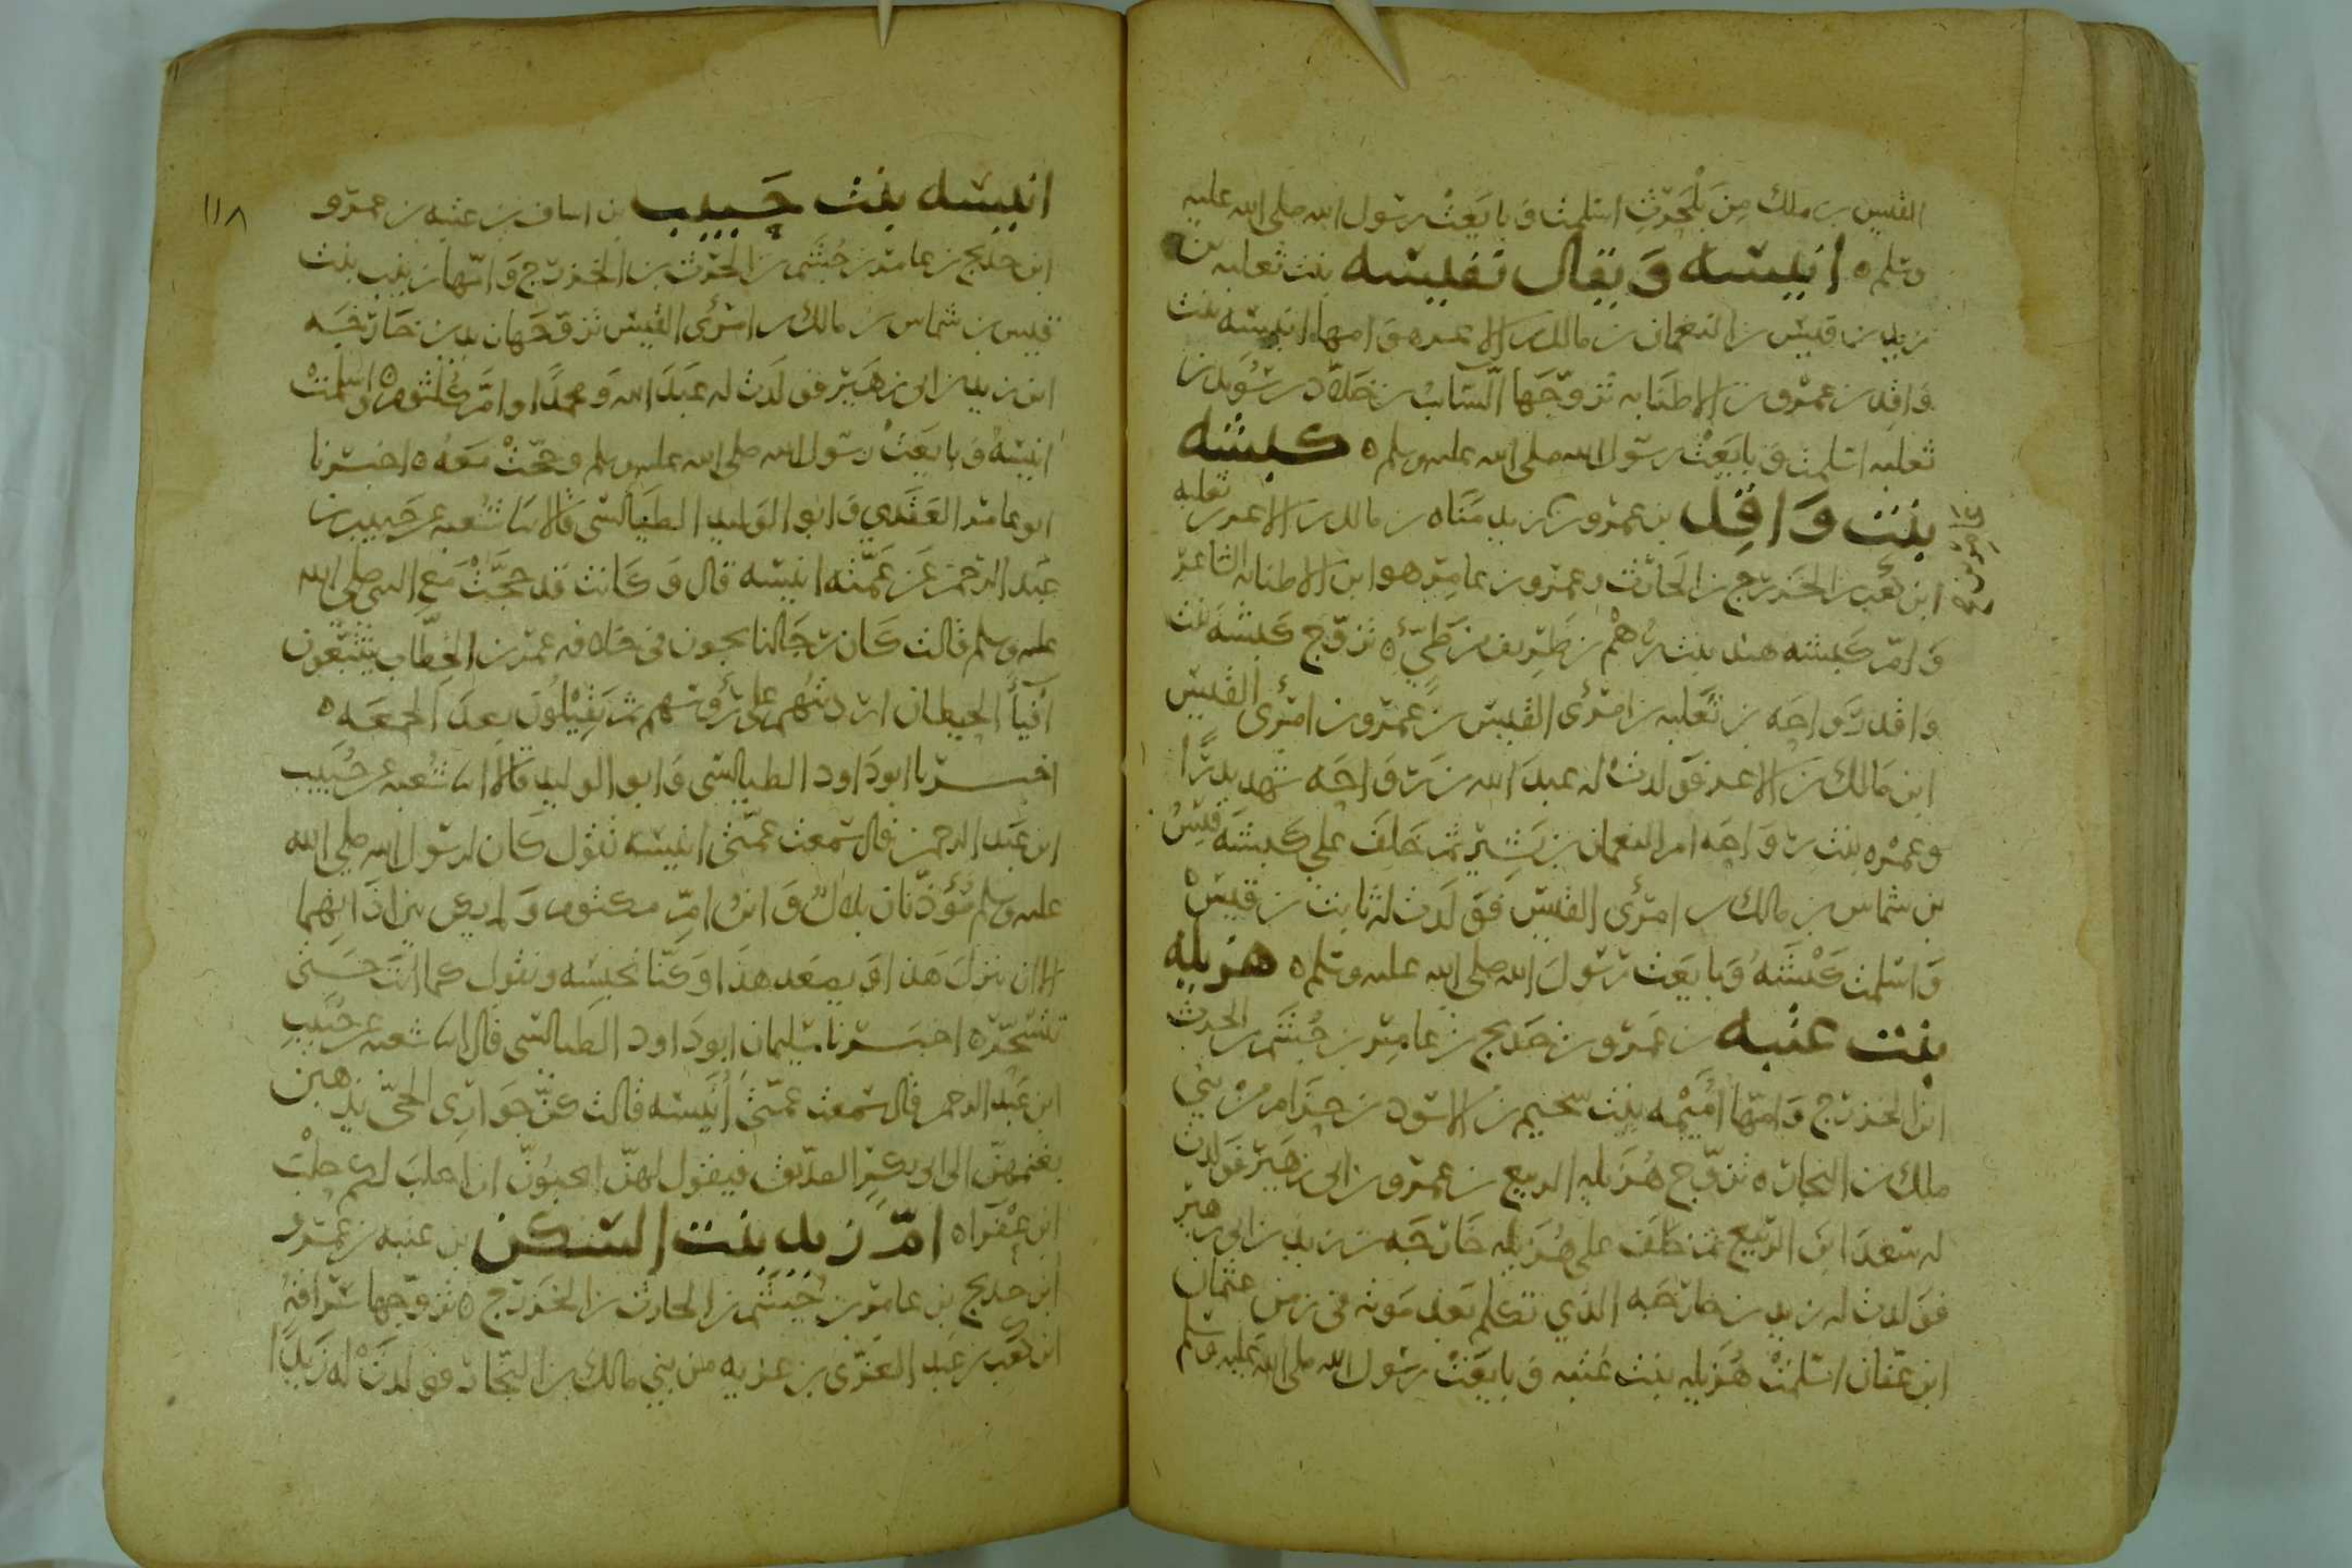 القيس بن ملك مِن بَلْحَرثِ اسلمت وَبايعَتْ رسول الله صلى الله عليه
وسلم ه انيسه وَيقال نفيسه بنت ثعلبه بن
زيد بن قيس بن النعمان بن مالك بن الاغر ه وَامها انيسه بنت
وَاقِد بن عمرو بن الاطنابه تزوّجَها السَّائب بن خلاد بن سُوَيد بن
ثعلبه اسلمت وَبايَعَتْ رسول الله صلى الله عليه وسلم ه كبشه
بنت وَاقِد بن عمرو بن زيد مَنَاه بن مالك بن الاغر بن ثعلبه
ابن كعب بن الخزرج بن الحَارث وعمرو بن عامِر هو ابن الاطنابه الشاعر
وَامّ كبشه هند بنت رُهْم بن طَرِيف من طَيّء ه تزوّج كَبشَه بنت
وَاقد رَوَاحَه بن ثَعلبه بن امرئ القيس بن عَمرو بن امرئ القيس
ابن مَالك بن الاغر فوَلدتْ له عبدَ الله بن رَوَاحَه شهد بدرًا
وعمره بنت رَوَاحَه امّ النعمان بن بَشِير ثم خَلَفَ على كبشَه قيسُ
بن شماس بن مالك بن امرئ القيس فوَلَدت له ثابت بن قيسْ
وَاسلمت كَبْشَهُ وَبايَعَت رسُولَ الله صلى الله عليه وسلم ه هزيله
بنت عتبه بن عَمرو بن خَديج بن عَامِر بن جُشَم بن الحرث
ابن الخزرج وَامّها أُمَيْمه بنت سحيم بن الاسود بن حَرَام مِنْ بَني
ملك بن النجار ه تزوّج هُزَيله الربيع بن عمرو بن ابي زهَير فوَلدت
له سَعدَ ابنَ الرّبيع ثم خلَفَ على هُزَيله خَارجَه بن زيد بن ابي زهير
فوَلدت له زيد بن خارجَه الذي تكلم بَعد مَوته في زمن عثمان
ابن عفّان اسلمَتْ هُزَيله بنت عُتبه وَبايَعَتْ رسُول الله صلى الله عليه وسلم
١١٨
انيسه بنت خُبَيب بن اساف بن عتبه بن عمرو
ابن خديج بن عامر بن جُشَم بن الحَرث بن الخزرج وَامّها زينب بنت
قيس بن شماس بن مالك بن امرئ القيس تزوّجَها زيد بن خَارجَه
ابن زيد بن ابي زهَير فوَلَدت له عَبدَ الله وَمحمدًا وامَّ كلثوم ه واسلمتْ
انيسَهُ وَبايعَتْ رسول الله صلى الله عليه وسلم وحجّتْ معَهُ ه اخبرنا
ابو عامر العَقَدي وَابو الوَليد الطيَالسي قالا نا شُعبه عن خُبيب بن
عبد الرحمن عَن عَمّته انيسه قال وَكَانت قد حجَّتْ مَع النبي صلى الله
عليه وسلم قالت كَان رجَالنا يجون في خلافه عمر بن الخطاب يتتبّعون
أَفيأَ الحيطان ارديتُهم على رُؤسهم ثم يَقِيْلُون بعدَ الجمعَه ه
اخبرنا ابو دَاود الطيالسي وَابو الوليد قالا انا شعبه عن خُبَيب
ابن عبد الرحمن قال سمعت عمّتي انيسَه تقول كَان لرسول الله صلى الله
عليه وسلم مُؤذّنان بلالٌ وَابن امّ مكتوم وَلم يكن بين اذانِهما
الا ان ينزلَ هَذا وَيصعَد هذَا وَكنّا نحبسه ونقول كما انتَ حَتى
نتسَحّر ه اخبَرنا سليمان ابو دَاود الطيالسي قال انا شعبه عن خُبَيب
ابن عَبد الرحمن قال سَمعت عمّتي أُنَيسَه قالت كنّ جَوَارِي الحَيّ يذهبن
بغنمهنّ الى ابي بكرٍ الصدّيق فيقول لهنّ اتحبُّونّ ان احلبَ لكم حلْبَ
ابن عفرَا ه امّ زيد بنت السكن بن عتبه بن عَمرو
ابن خديج بن عامر بن جُشَم بن الحارث بن الخزرج ه تزوّجها سُرَاقه
ابن كعب بن عبد العُزّى بن غزيه من بني مالك بن النجّار فولدَتْ له زَيدًا